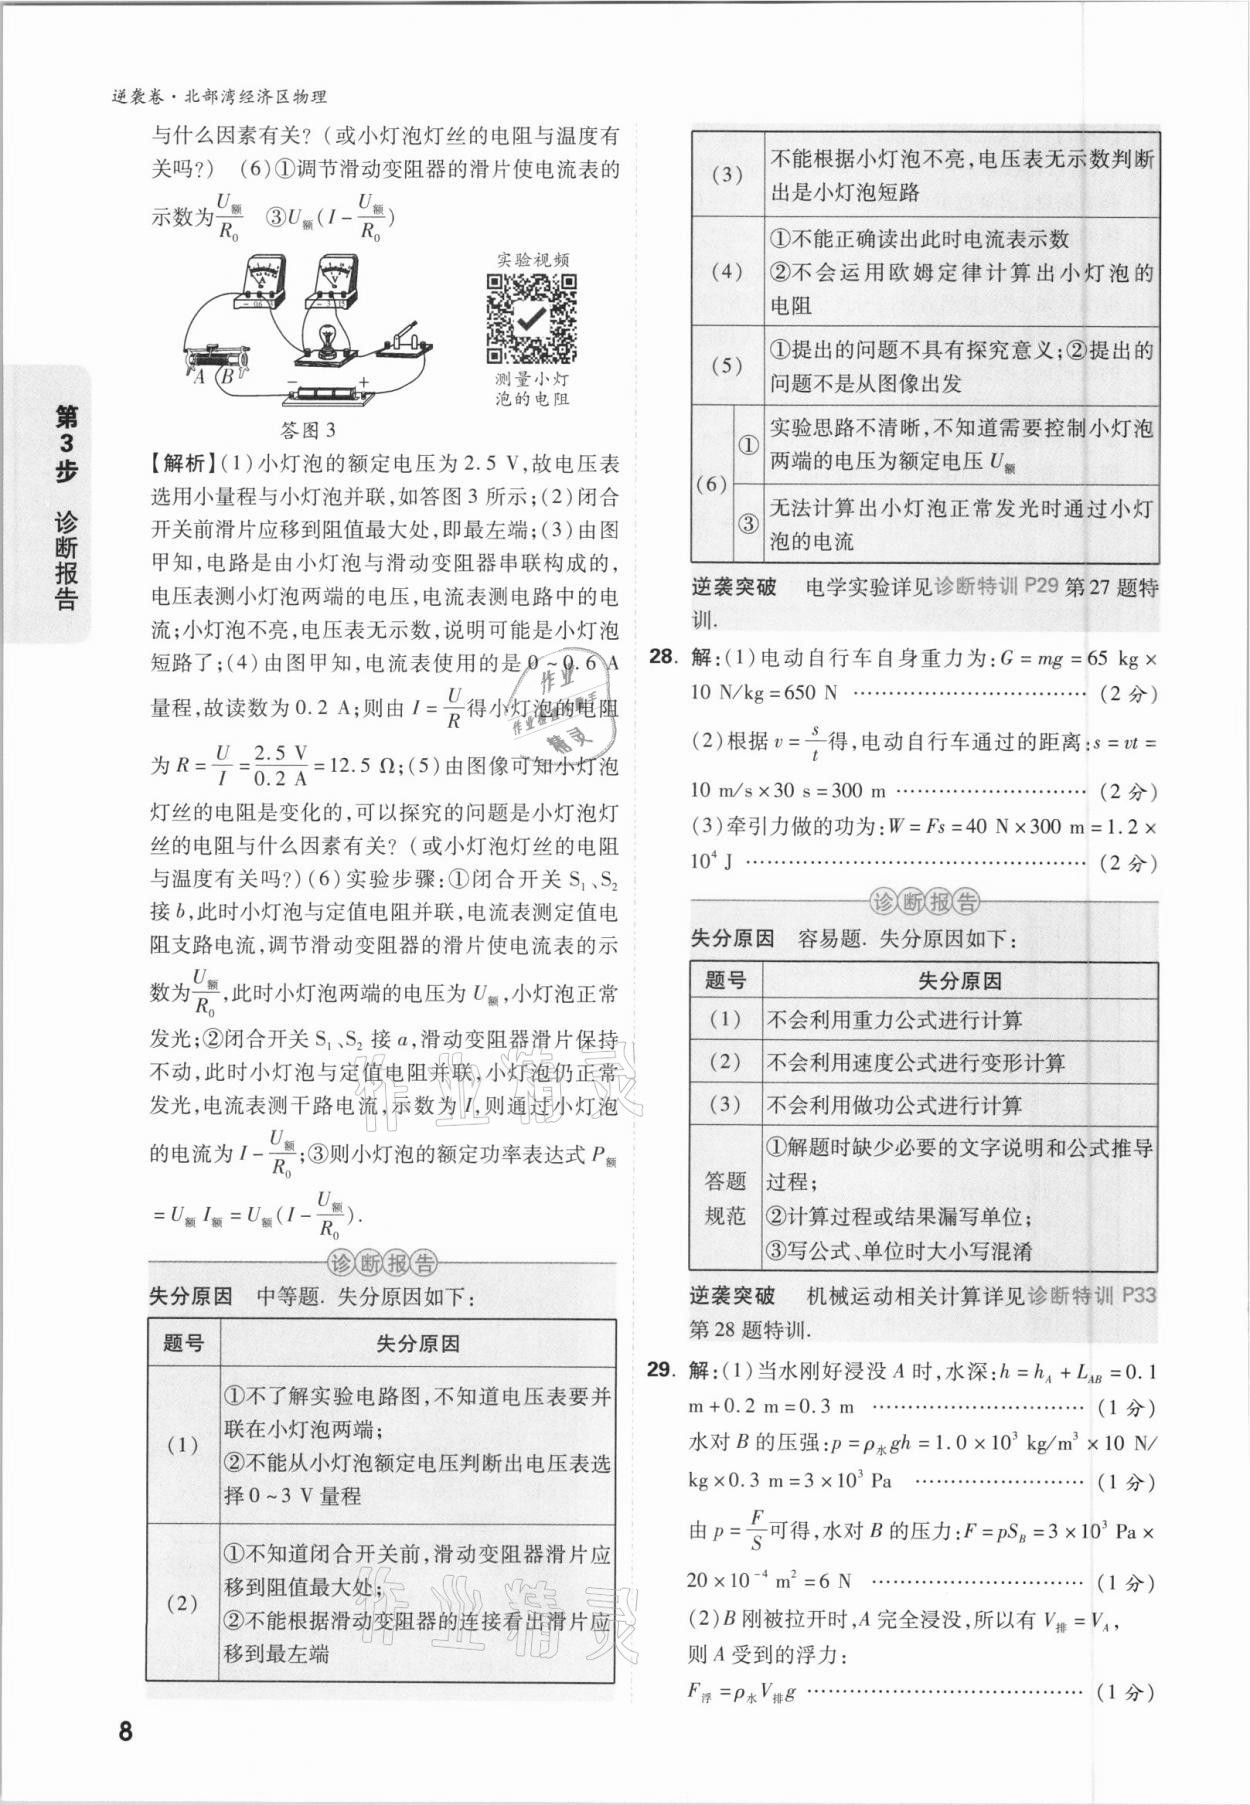 逆袭卷·北部湾经济区物理
与什么因素有关?(或小灯泡灯丝的电阻与温度有
关吗?) (6)①调节滑动变阻器的滑片使电流表的
示数为U额/R₀ ③U额(I-U额/R₀)
实验视频
A B
- 0.6 3
- 3 15
- +
测量小灯
泡的电阻
答图3
【解析】(1)小灯泡的额定电压为2.5 V,故电压表
选用小量程与小灯泡并联,如答图3所示;(2)闭合
开关前滑片应移到阻值最大处,即最左端;(3)由图
甲知,电路是由小灯泡与滑动变阻器串联构成的,
电压表测小灯泡两端的电压,电流表测电路中的电
流;小灯泡不亮,电压表无示数,说明可能是小灯泡
短路了;(4)由图甲知,电流表使用的是0~0.6 A
量程,故读数为0.2 A;则由I=U/R得小灯泡的电阻
为R=U/I=2.5 V/0.2 A=12.5 Ω;(5)由图像可知小灯泡
灯丝的电阻是变化的,可以探究的问题是小灯泡灯
丝的电阻与什么因素有关?(或小灯泡灯丝的电阻
与温度有关吗?)(6)实验步骤:①闭合开关S₁、S₂
接b,此时小灯泡与定值电阻并联,电流表测定值电
阻支路电流,调节滑动变阻器的滑片使电流表的示
数为U额/R₀,此时小灯泡两端的电压为U额,小灯泡正常
发光;②闭合开关S₁、S₂接a,滑动变阻器滑片保持
不动,此时小灯泡与定值电阻并联,小灯泡仍正常
发光,电流表测干路电流,示数为I,则通过小灯泡
的电流为I-U额/R₀;③则小灯泡的额定功率表达式P额
=U额I额=U额(I-U额/R₀).
诊断报告
失分原因 中等题. 失分原因如下:
题号 失分原因
(1)
①不了解实验电路图,不知道电压表要并
联在小灯泡两端;
②不能从小灯泡额定电压判断出电压表选
择0~3 V量程
(2)
①不知道闭合开关前,滑动变阻器滑片应
移到阻值最大处;
②不能根据滑动变阻器的连接看出滑片应
移到最左端
8
第3步 诊断报告
(3)
不能根据小灯泡不亮,电压表无示数判断
出是小灯泡短路
(4)
①不能正确读出此时电流表示数
②不会运用欧姆定律计算出小灯泡的
电阻
(5)
①提出的问题不具有探究意义;②提出的
问题不是从图像出发
(6)
①
实验思路不清晰,不知道需要控制小灯泡
两端的电压为额定电压U额
③
无法计算出小灯泡正常发光时通过小灯
泡的电流
逆袭突破 电学实验详见诊断特训P29第27题特
训.
28. 解:(1)电动自行车自身重力为:G=mg=65 kg×
10 N/kg=650 N ……………………………(2分)
(2)根据v=s/t得,电动自行车通过的距离:s=vt=
10 m/s×30 s=300 m ………………………(2分)
(3)牵引力做的功为:W=Fs=40 N×300 m=1.2×
10⁴ J …………………………………………(2分)
诊断报告
失分原因 容易题. 失分原因如下:
题号 失分原因
(1) 不会利用重力公式进行计算
(2) 不会利用速度公式进行变形计算
(3) 不会利用做功公式进行计算
答题
规范
①解题时缺少必要的文字说明和公式推导
过程;
②计算过程或结果漏写单位;
③写公式、单位时大小写混淆
逆袭突破 机械运动相关计算详见诊断特训P33
第28题特训.
29. 解:(1)当水刚好浸没A时,水深:h=hA+LAB=0.1
m+0.2 m=0.3 m ……………………………(1分)
水对B的压强:p=ρ水gh=1.0×10³ kg/m³×10 N/
kg×0.3 m=3×10³ Pa ………………………(1分)
由p=F/S可得,水对B的压力:F=pSB=3×10³ Pa×
20×10⁻⁴ m²=6 N ……………………………(1分)
(2)B刚被拉开时,A完全浸没,所以有V排=VA,
则A受到的浮力:
F浮=ρ水V排g …………………………………(1分)
作业精灵
作业精灵
作业
精灵